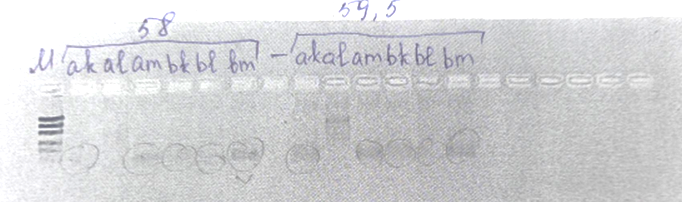 58 59,5
M ak al am bk bl bm – ak al am bk bl bm